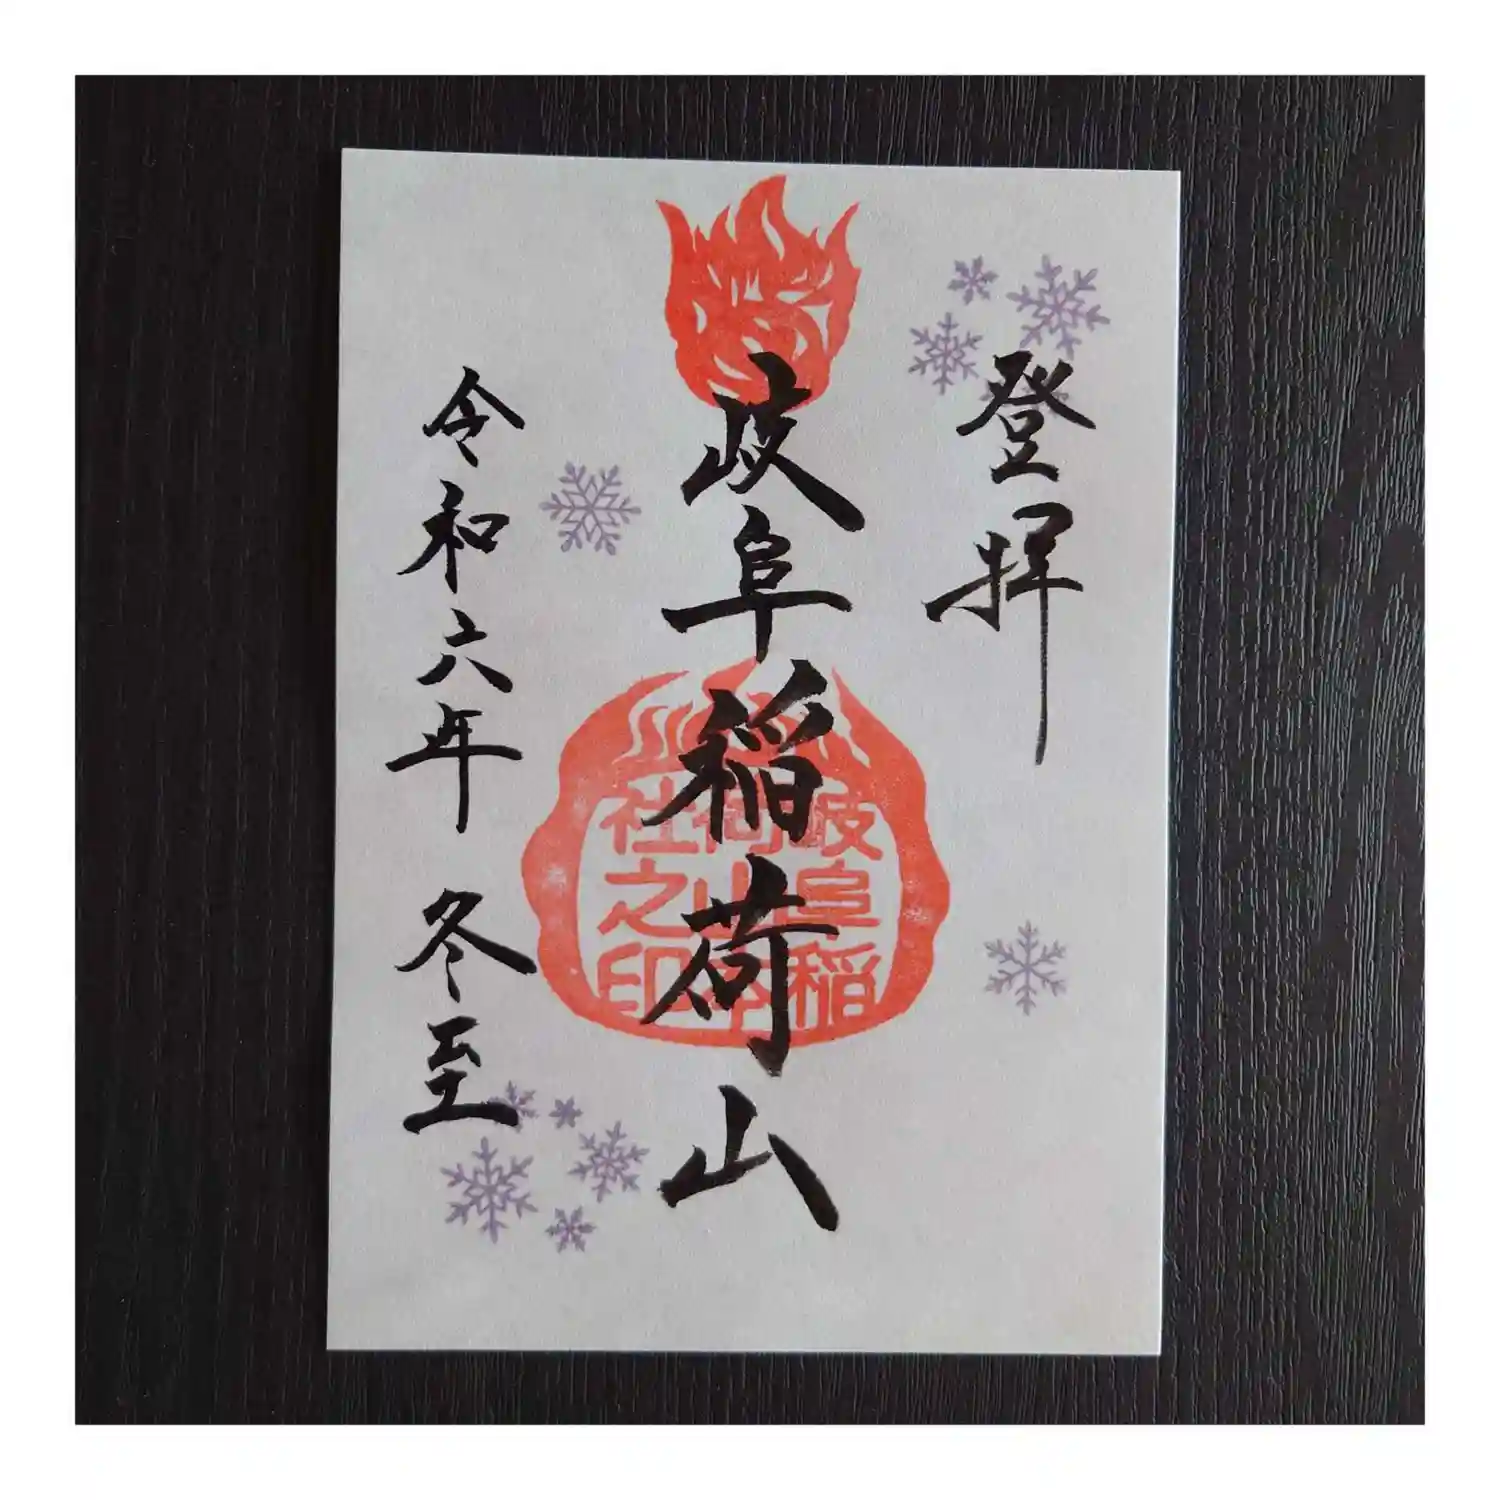 登拝
岐阜稲荷山
岐阜稲
荷山本
社之印
令和六年 冬至